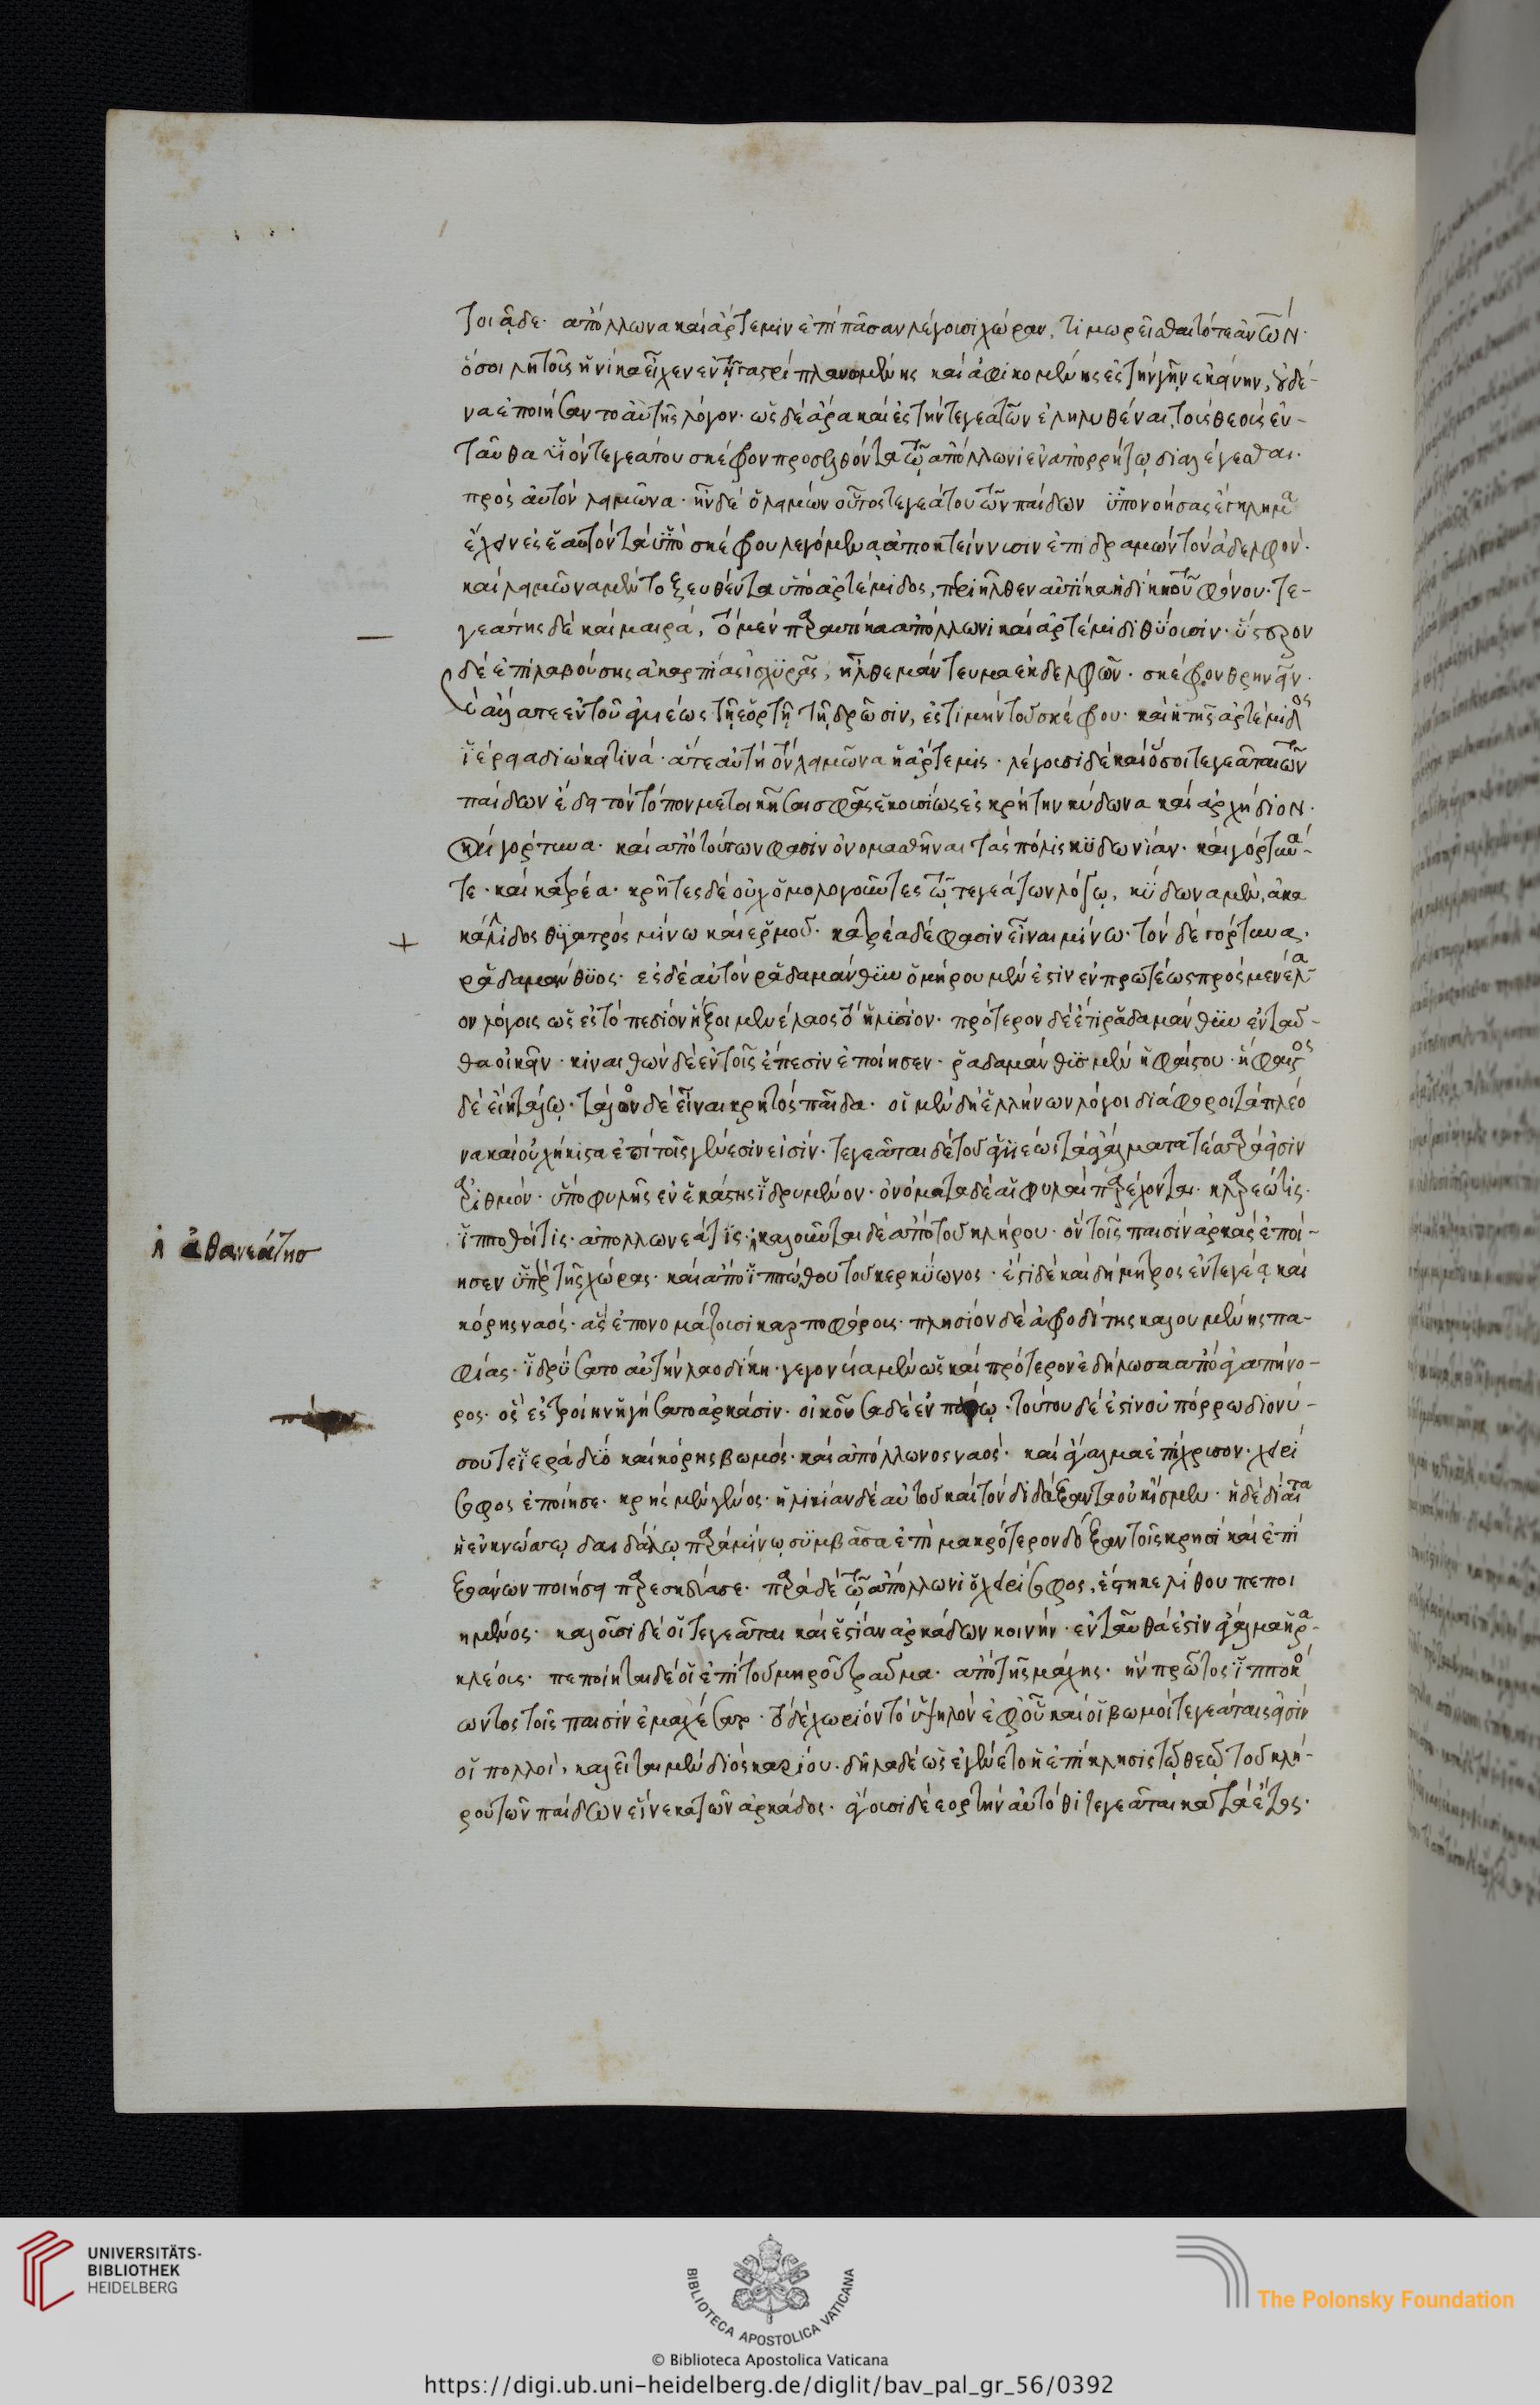 τοιᾷδε· ἀπόλλωνα καὶ ἄρτεμιν ἐπὶ πᾶσαν λέγουσι χώραν, τιμωρεῖσθαι τότε ἀν τῶν·
ὅσοι λητοῦς ἡνίκα εἶχεν ἐν τῇ γαστρὶ πλανομένης καὶ ἀφικομένης ἐς τὴν γῆν ἐκείνην, οὐδέ-
να ἐποιήσαντο αὐτῆς λόγον· ὡς δὲ ἄρα καὶ ἐς τὴν τεγεατῶν ἐληλυθέναι τοὺς θεοὺς ἐν-
ταῦθα υἱὸν τεγεάτου σκέφρον προσελθόντα τῷ ἀπόλλωνι ἐν ἀπορρήτῳ διαλέγεσθαι·
πρὸς αὐτὸν λειμῶνα· ἦν δὲ ὁ λειμὼν οὗτος τεγεάτου τῶν παίδων ὑπονοήσας ἔγκλημα
ἔχειν ἐς ἑαυτὸν τὰ ὑπὸ σκέφρου λεγόμενα ἀποκτείννυσιν ἐπιδραμὼν τὸν ἀδελφόν·
καὶ λειμῶνα μὲν τοξευθέντα ὑπὸ ἀρτέμιδος, περιῆλθεν αὐτίκα ἡ δίκη τοῦ φόνου· τε-
γεάτης δὲ καὶ μαιρά, τὸ μὲν παραυτίκα ἀπόλλωνι καὶ ἀρτέμιδι θύουσιν· ὕστερον
δὲ ἐπιλαβούσης ἀκαρπίας ἰσχυρᾶς, ἦλθε μάντευμα ἐκ δελφῶν· σκέφρον θρηνεῖν·
ἄλλα τε ἐν τοῦ ἀγυιέως τῇ ἑορτῇ τῇ δρῶσιν, ἐς τιμὴν τοῦ σκέφρου· καὶ ἡ τῆς ἀρτέμιδος
ἱέρεια διώκει τινά· ἅτε αὐτὴ τὸν λειμῶνα ἡ ἄρτεμις· λέγουσι δὲ καὶ ὅσοι τεγεάται τῶν
παίδων ἐδει τὸν τόπον μετοικῆσαι σφᾶς ἑκουσίως ἐς κρήτην κύδωνα καὶ ἀρχήδιον·
καὶ γόρτυνα· καὶ ἀπὸ τούτων φασὶν ὀνομασθῆναι τὰς πόλις κυδωνίαν· καὶ γόρτυνά-
τε· καὶ κατρέα· κρῆτες δὲ οὐχ ὁμολογοῦντες τῷ τεγεάτων λόγῳ, κύδωνα μὲν, ἀκα
κάλλιδος θυγατρὸς μίνω καὶ ἑρμοῦ· κατρέα δέ φασιν εἶναι μίνω· τὸν δὲ γόρτυνα·
ῥαδαμάνθυος· ἐς δὲ αὐτὸν ῥαδάμανθυν ὁμήρου μέν ἐστιν ἐν πρωτέως πρὸς μενέλα-
ον λόγοις ὡς ἐς τὸ πεδίον ἥξοι μενέλαος τὸ ἠλύσιον· πρότερον δὲ ἔτι ῥαδάμανθυν ἐνταῦ-
θα οἰκεῖν· κιναιθων δὲ ἐν τοῖς ἔπεσιν ἐποίησεν· ῥαδάμανθυς μὲν ἡφαίστου· ἥφαιστος
δὲ εἴη τάλω· τάλων δὲ εἶναι κρητὸς παῖδα· οἱ μὲν δὴ ἑλλήνων λόγοι διάφοροι τὰ πλέο
να καὶ οὐχ ἥκιστα ἐπὶ τοῖς γένεσίν εἰσίν· τεγεάται δὲ τοῦ ἀγυιέως τὰ ἀγάλματα τέσσαρά εἰσιν
ἀριθμόν· ὑπὸ φυλῆς ἐν ἑκάστης ἱδρυμένον· ὀνόματα δὲ αἱ φυλαὶ παρέχονται· κλαρεῶτις·
ἱπποθοῖτις· ἀπολλωνεάτις· καλοῦνται δὲ ἀπὸ τοῦ κλήρου· ὃν τοῖς παισὶν ἀρκὰς ἐποί-
ησεν ὑπὲρ τῆς χώρας· καὶ ἀπὸ ἱππόθου τοῦ κερκύωνος· ἔστι δὲ καὶ δήμητρος ἐν τεγέᾳ καὶ
κόρης ναός· ἃς ἐπονομάζουσι καρποφόρους· πλησίον δὲ ἀφροδίτης καλουμένης πα-
φίας· ἱδρύσατο αὐτὴν λαοδίκη· γεγονυῖα μὲν ὡς καὶ πρότερον ἐδήλωσα ἀπὸ ἀγαπήνο-
ρος· ὃς ἐς τροίην ἡγήσατο ἀρκάσιν· οἰκοῦσα δὲ ἐν πάφῳ· τούτου δέ ἐστιν οὐ πόρρω διονύ-
σου τε ἱερὰ δύο καὶ κόρης βωμός· καὶ ἀπόλλωνος ναός· καὶ ἄγαλμα ἐπίχρυσον· χειρί
σοφος ἐποίησε· κρὴς μὲν γένος· ἡλικίαν δὲ αὐτοῦ καὶ τὸν διδάξαντα οὐκ ἴσμεν· ἡ δὲ δίαιτα
ἡ ἐν κνώσσῳ δαιδάλῳ παρὰ μίνῳ συμβᾶσα ἐπὶ μακρότερον δόξαν τοῖς κρησὶ καὶ ἐπὶ
ξοάνων ποιήσει παρεσκεύασε· παρὰ δὲ τῷ ἀπόλλωνι ὁ χειρίσοφος, ἕστηκε λίθου πεποι
ημένος· καλοῦσι δὲ οἱ τεγεάται καὶ ἑστίαν ἀρκάδων κοινήν· ἐνταῦθά ἐστιν ἄγαλμα ἡρα-
κλέους· πεποίηται δέ οἱ ἐπὶ τοῦ μηροῦ τραῦμα· ἀπὸ τῆς μάχης· ἣν πρῶτος ἱπποκό
ωντος τοῖς παισὶν ἐμαχέσατο· τὸ δὲ χωρίον τὸ ὑψηλὸν ἐφ' οὗ καὶ οἱ βωμοὶ τεγεάταις εἰσὶν
οἱ πολλοί, καλεῖται μὲν διὸς καρίου· δῆλα δὲ ὡς ἐγένετο ἡ ἐπίκλησις τῷ θεῷ τοῦ κλή-
ρου τῶν παίδων εἵνεκα τῶν ἀρκάδος· ἄγουσι δὲ ἑορτὴν αὐτόθι τεγεάται κατὰ ἔτος·
ἀθανεάτης
UNIVERSITÄTS-
BIBLIOTHEK
HEIDELBERG
BIBLIOTECA APOSTOLICA VATICANA
The Polonsky Foundation
© Biblioteca Apostolica Vaticana
https://digi.ub.uni-heidelberg.de/diglit/bav_pal_gr_56/0392